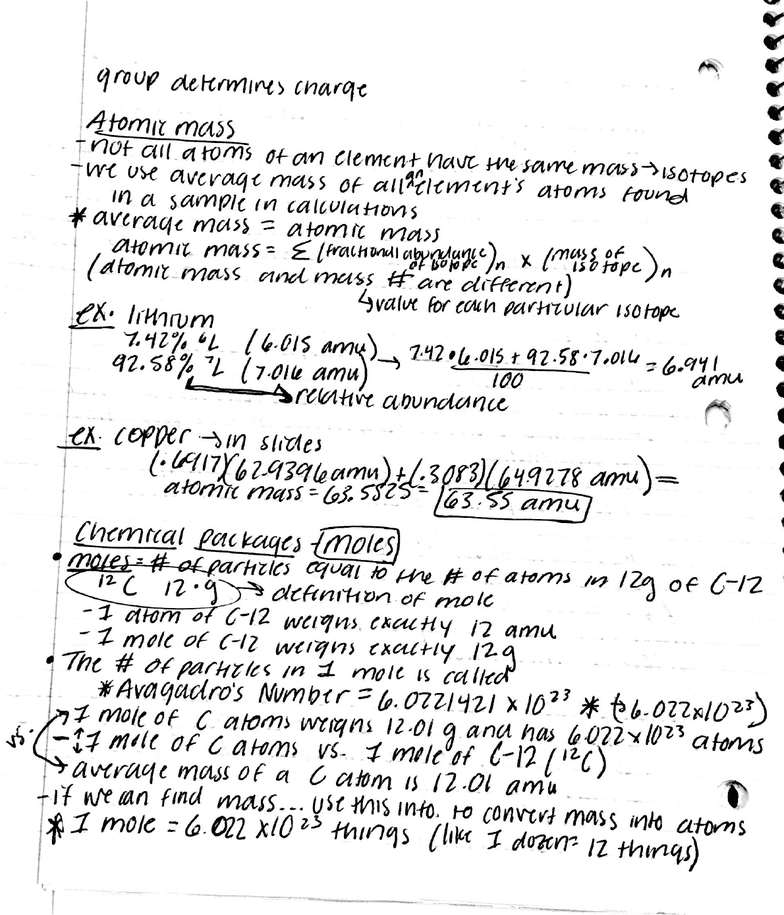 group determines charge
Atomic mass
-not all atoms of an element have the same mass→isotopes
-we use average mass of all an element's atoms found
in a sample in calculations
* average mass = atomic mass
atomic mass = Σ (fractional abundance of isotope)n × (mass of isotope)n
(atomic mass and mass # are different)
↳value for each particular isotope
ex. lithium
7.42% ⁶L (6.015 amu)
92.58% ⁷L (7.016 amu) → 7.42•6.015 + 92.58•7.016 / 100 = 6.941 amu
→relative abundance
ex. copper →in slides
(.6917)(62.9396amu)+(.3083)(64.9278 amu)=
atomic mass = 63.5525 = 63.55 amu
Chemical packages - moles
• moles = # of particles equal to the # of atoms in 12g of C-12
¹²C 12•g → definition of mole
- 1 atom of C-12 weighs exactly 12 amu
- 1 mole of C-12 weighs exactly 12g
• The # of particles in 1 mole is called
*Avagadro's Number = 6.0221421 × 10²³ * (6.022×10²³)
→1 mole of C atoms weighs 12.01 g and has 6.022×10²³ atoms
vs. -↕1 mole of C atoms vs. 1 mole of C-12 (¹²C)
→ average mass of a C atom is 12.01 amu
-if we can find mass... use this info. to convert mass into atoms
* 1 mole = 6.022 ×10²³ things (like 1 dozen= 12 things)